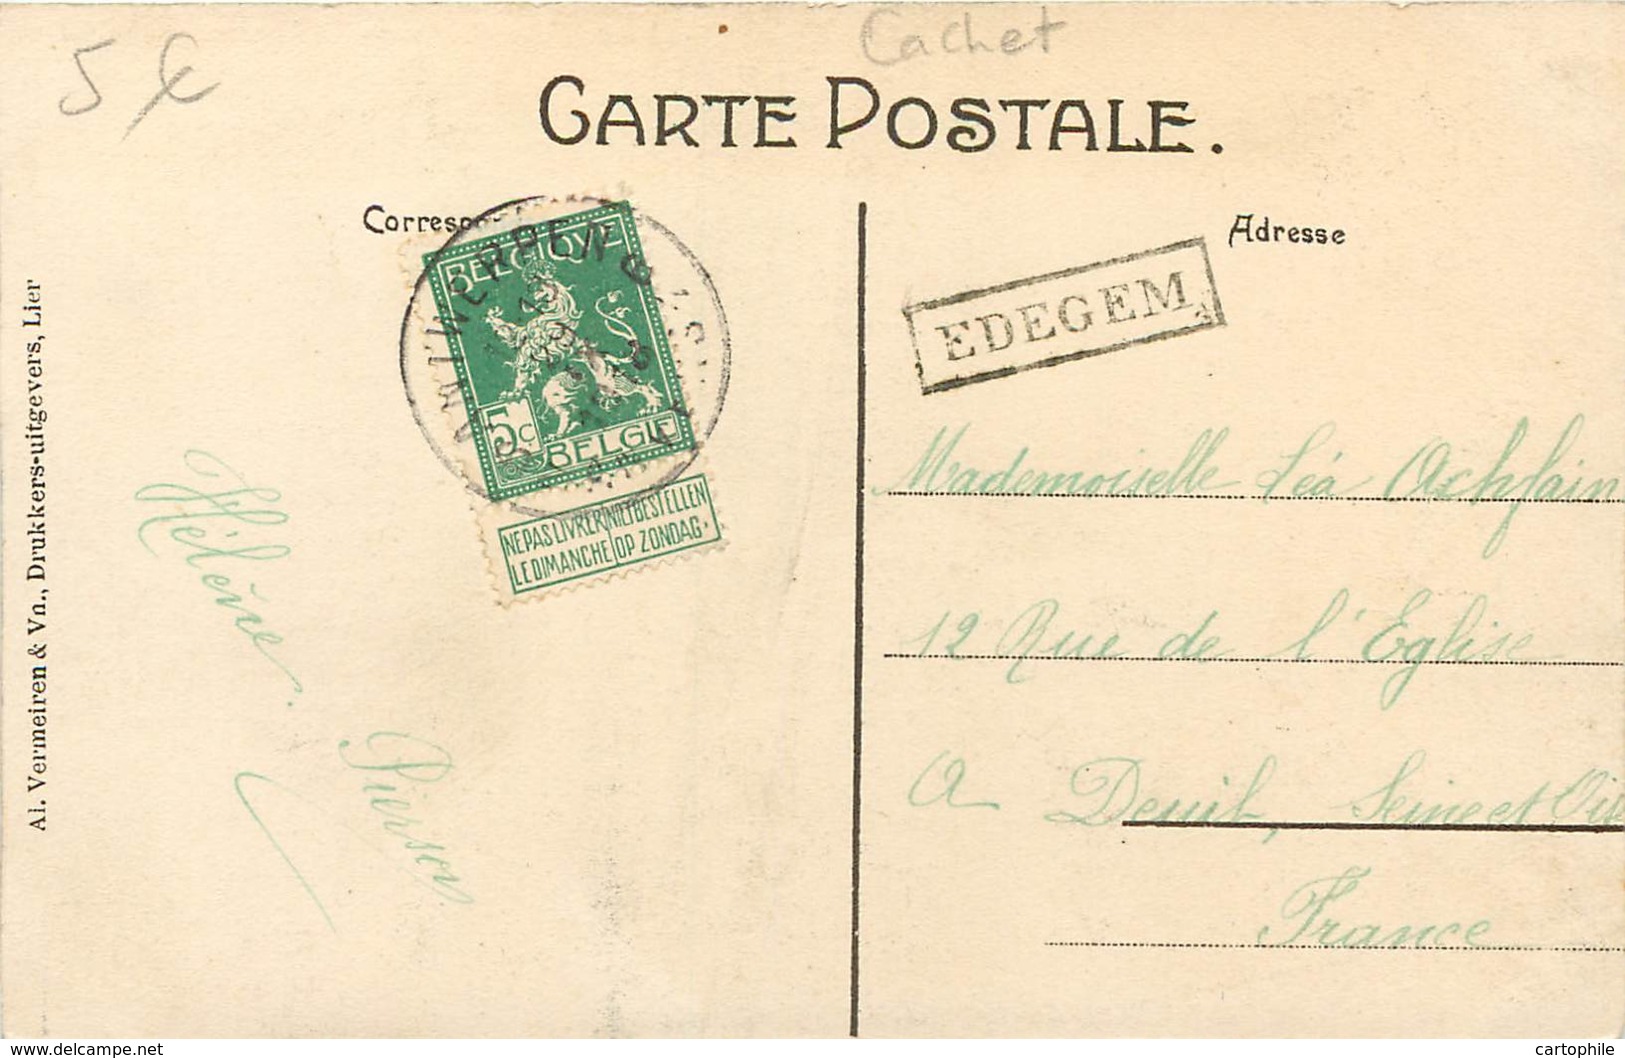 5 €
Cachet
CARTE POSTALE.
Adresse
BELGIQVE
ANTWERPEN
5c
BELGIË
NE PAS LIVRER NIET BESTELLEN
LE DIMANCHE OP ZONDAG.
EDEGEM
Al. Vermeiren & Vn., Drukkers-uitgevers, Lier
Hélène
Pierson
Mademoiselle Léa
12 Rue de l'Eglise
A Deuil, Seine et Oise
France
www.delcampe.net
cartophile